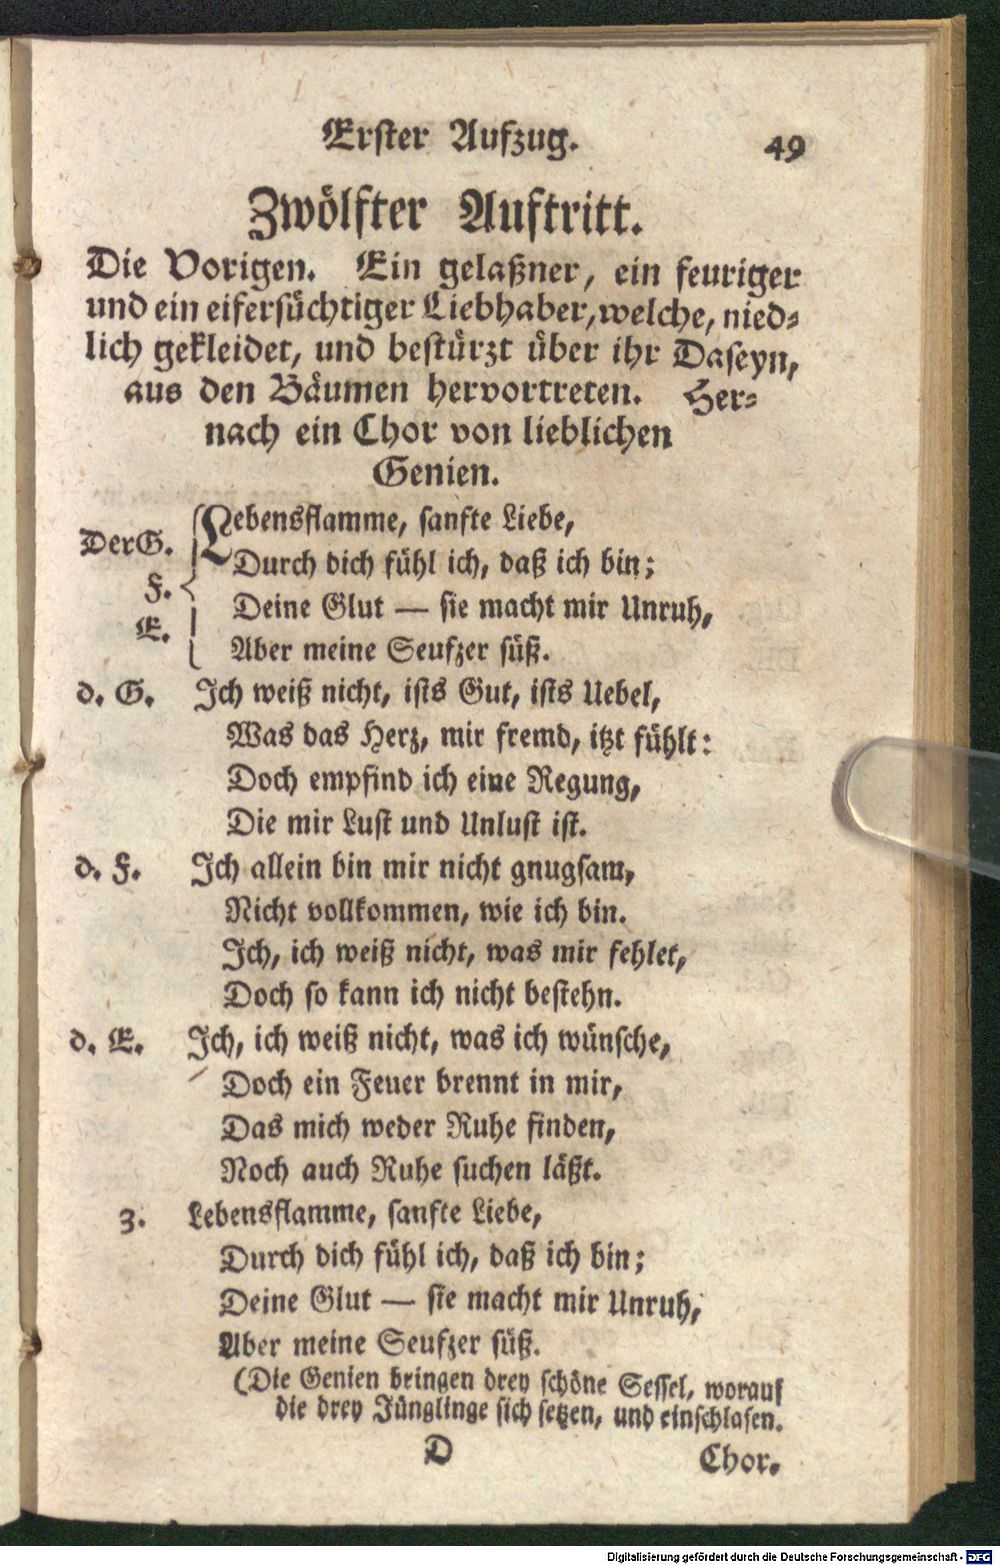 Erster Aufzug. 49
Zwölfter Auftritt.
Die Vorigen. Ein gelaßner, ein feuriger
und ein eifersüchtiger Liebhaber, welche, nied-
lich gekleidet, und bestürzt über ihr Daseyn,
aus den Bäumen hervortreten. Her-
nach ein Chor von lieblichen
Genien.
Der G. Lebensflamme, sanfte Liebe,
Durch dich fühl ich, daß ich bin;
F. Deine Glut — sie macht mir Unruh,
E. Aber meine Seufzer süß.
d. G. Ich weiß nicht, ists Gut, ists Uebel,
Was das Herz, mir fremd, itzt fühlt:
Doch empfind ich eine Regung,
Die mir Lust und Unlust ist.
d. F. Ich allein bin mir nicht gnugsam,
Nicht vollkommen, wie ich bin.
Ich, ich weiß nicht, was mir fehlet,
Doch so kann ich nicht bestehn.
d. E. Ich, ich weiß nicht, was ich wünsche,
Doch ein Feuer brennt in mir,
Das mich weder Ruhe finden,
Noch auch Ruhe suchen läßt.
3. Lebensflamme, sanfte Liebe,
Durch dich fühl ich, daß ich bin;
Deine Glut — sie macht mir Unruh,
Aber meine Seufzer süß.
(Die Genien bringen drey schöne Sessel, worauf
die drey Jünglinge sich setzen, und einschlafen.
D Chor.
Digitalisierung gefördert durch die Deutsche Forschungsgemeinschaft - DFG